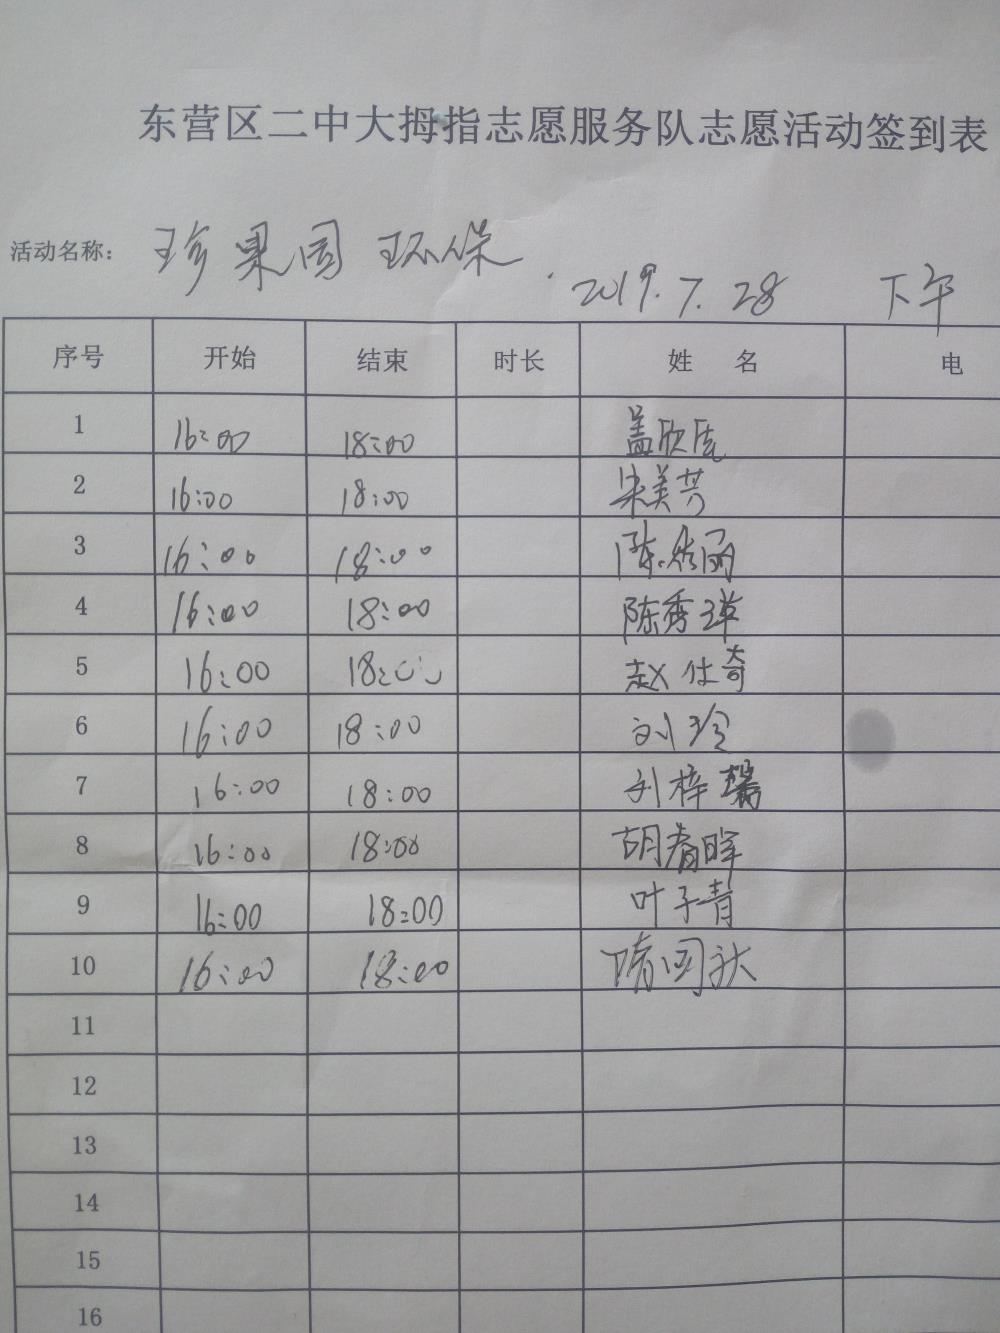 东营区二中大拇指志愿服务队志愿活动签到表
活动名称: 珍果园 环保 . 2019.7.28 下午
序号 开始 结束 时长 姓 名 电
1 16:00 18:00 盖欣
2 16:00 18:00 宋美芳
3 16:00 18:00 陈秀丽
4 16:00 18:00 陈秀萍
5 16:00 18:00 赵仕奇
6 16:00 18:00 刘玲
7 16:00 18:00 刘梓馨
8 16:00 18:00 胡春晖
9 16:00 18:00 叶子青
10 16:00 18:00 隋国秋
11
12
13
14
15
16